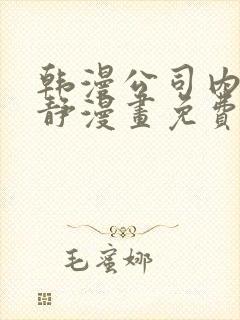 韩漫公司内
静漫畫免費
毛蜜娜